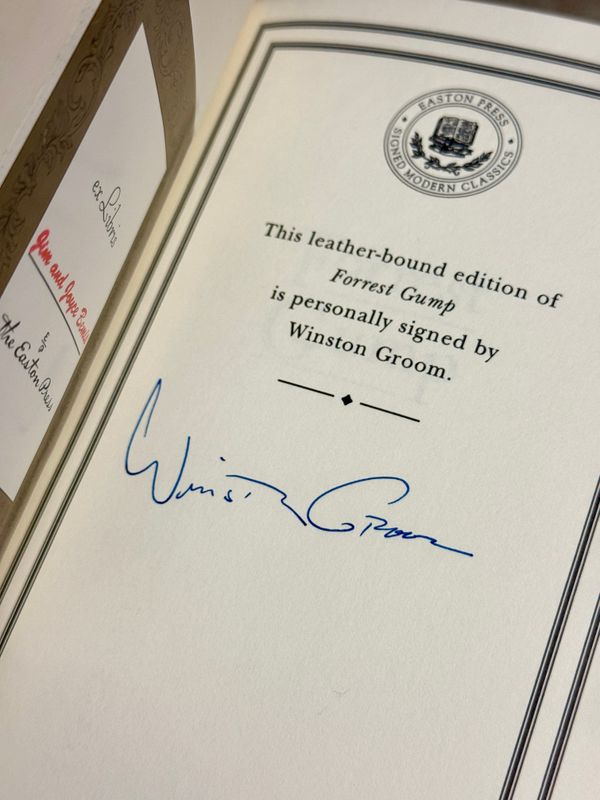 ex Libris
Jim and Joyce
&
the Easton Press
EASTON PRESS
SIGNED MODERN CLASSICS
This leather-bound edition of
Forrest Gump
is personally signed by
Winston Groom.
Winston Groom